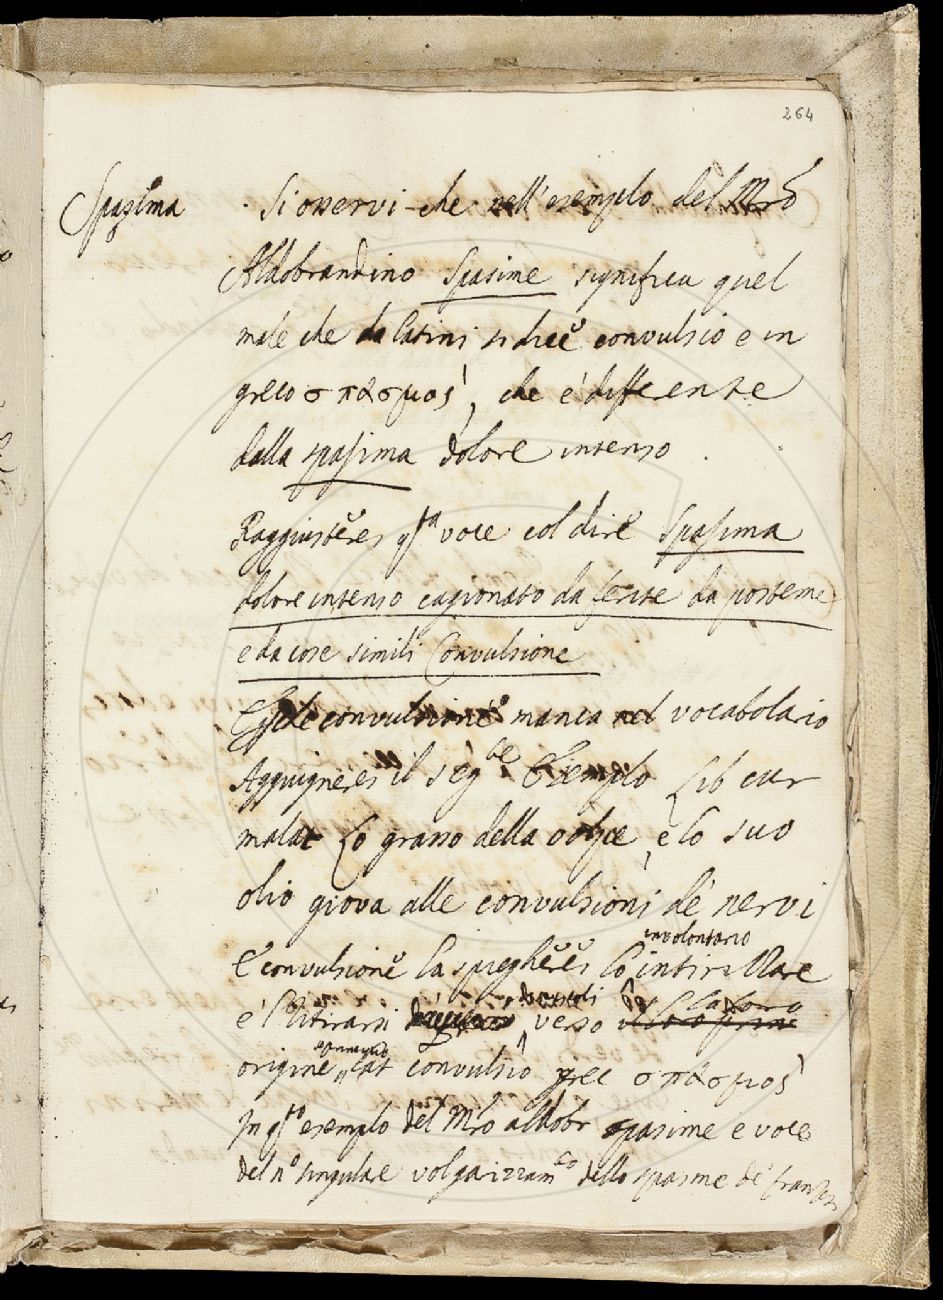 264
Spasima Si osservi che nell'esemplo del Mro
Aldobrandino Spasime significa quel
male che da latini si dice convulsio e in
greco σπασμος, che è differente
dalla spasima dolore intenso
Raggiusterei qta voce col dire Spasima
dolore intenso cagionato da ferite da posteme
e da cose simili Convulsione
convulsione manca nel vocabolario
Aggiugnerei il segte Esemplo Lib cur
malat Lo grasso della volpe, e lo suo
olio giova alle convulsioni de' nervi
involontario
E convulsione la spiegherei lo intirizzare
de muscoli la loro
e 'l ritirarsi verso
origine, lat convulsio grec σπασμος
In qto esemplo del Mro aldobr spasime e voce
del no singulare volgarizzamto dello spasme de' franzesi